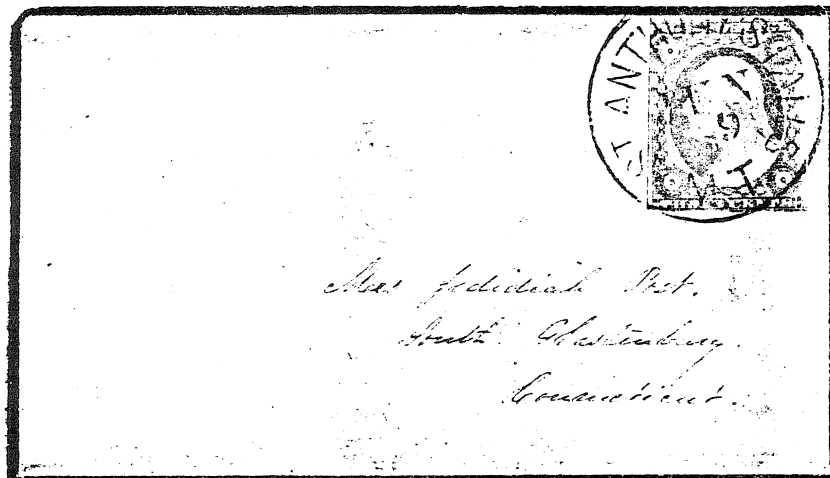 ST ANT
9
M T
Mrs Jedidiah Post.
South Glastenbury.
Connecticut.